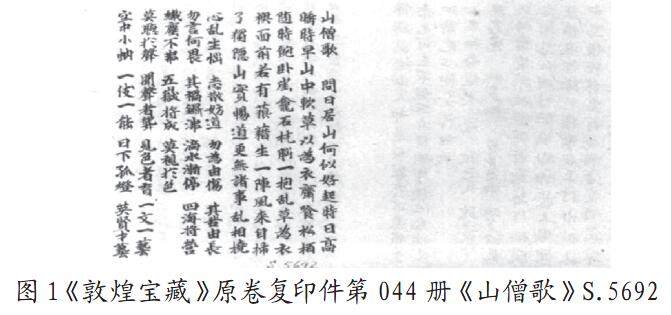 山僧歌 問曰居山何似好起時日高
睡時早山中軟草以為衣齋飡松柏
随時飽卧崖龕石枕腦一抱乱草為衣
襖面前若有藂藉生一陣風来自掃
了獨隐山實暢道更無諸事乱相撓
心乱生惱 志散妨道 勿為由傷 其苦由長
勿言何畏 其禍鑊沸 滴水漸停 四海将營
塵不 五嶽将成 莫視於色
莫聴於聲 聞聲者聾 見色者盲 一文一藝
空中小蚋 一伎一能 日下孤燈 英賢才藝
S.5692
图1《敦煌宝藏》原卷复印件第044册《山僧歌》S.5692